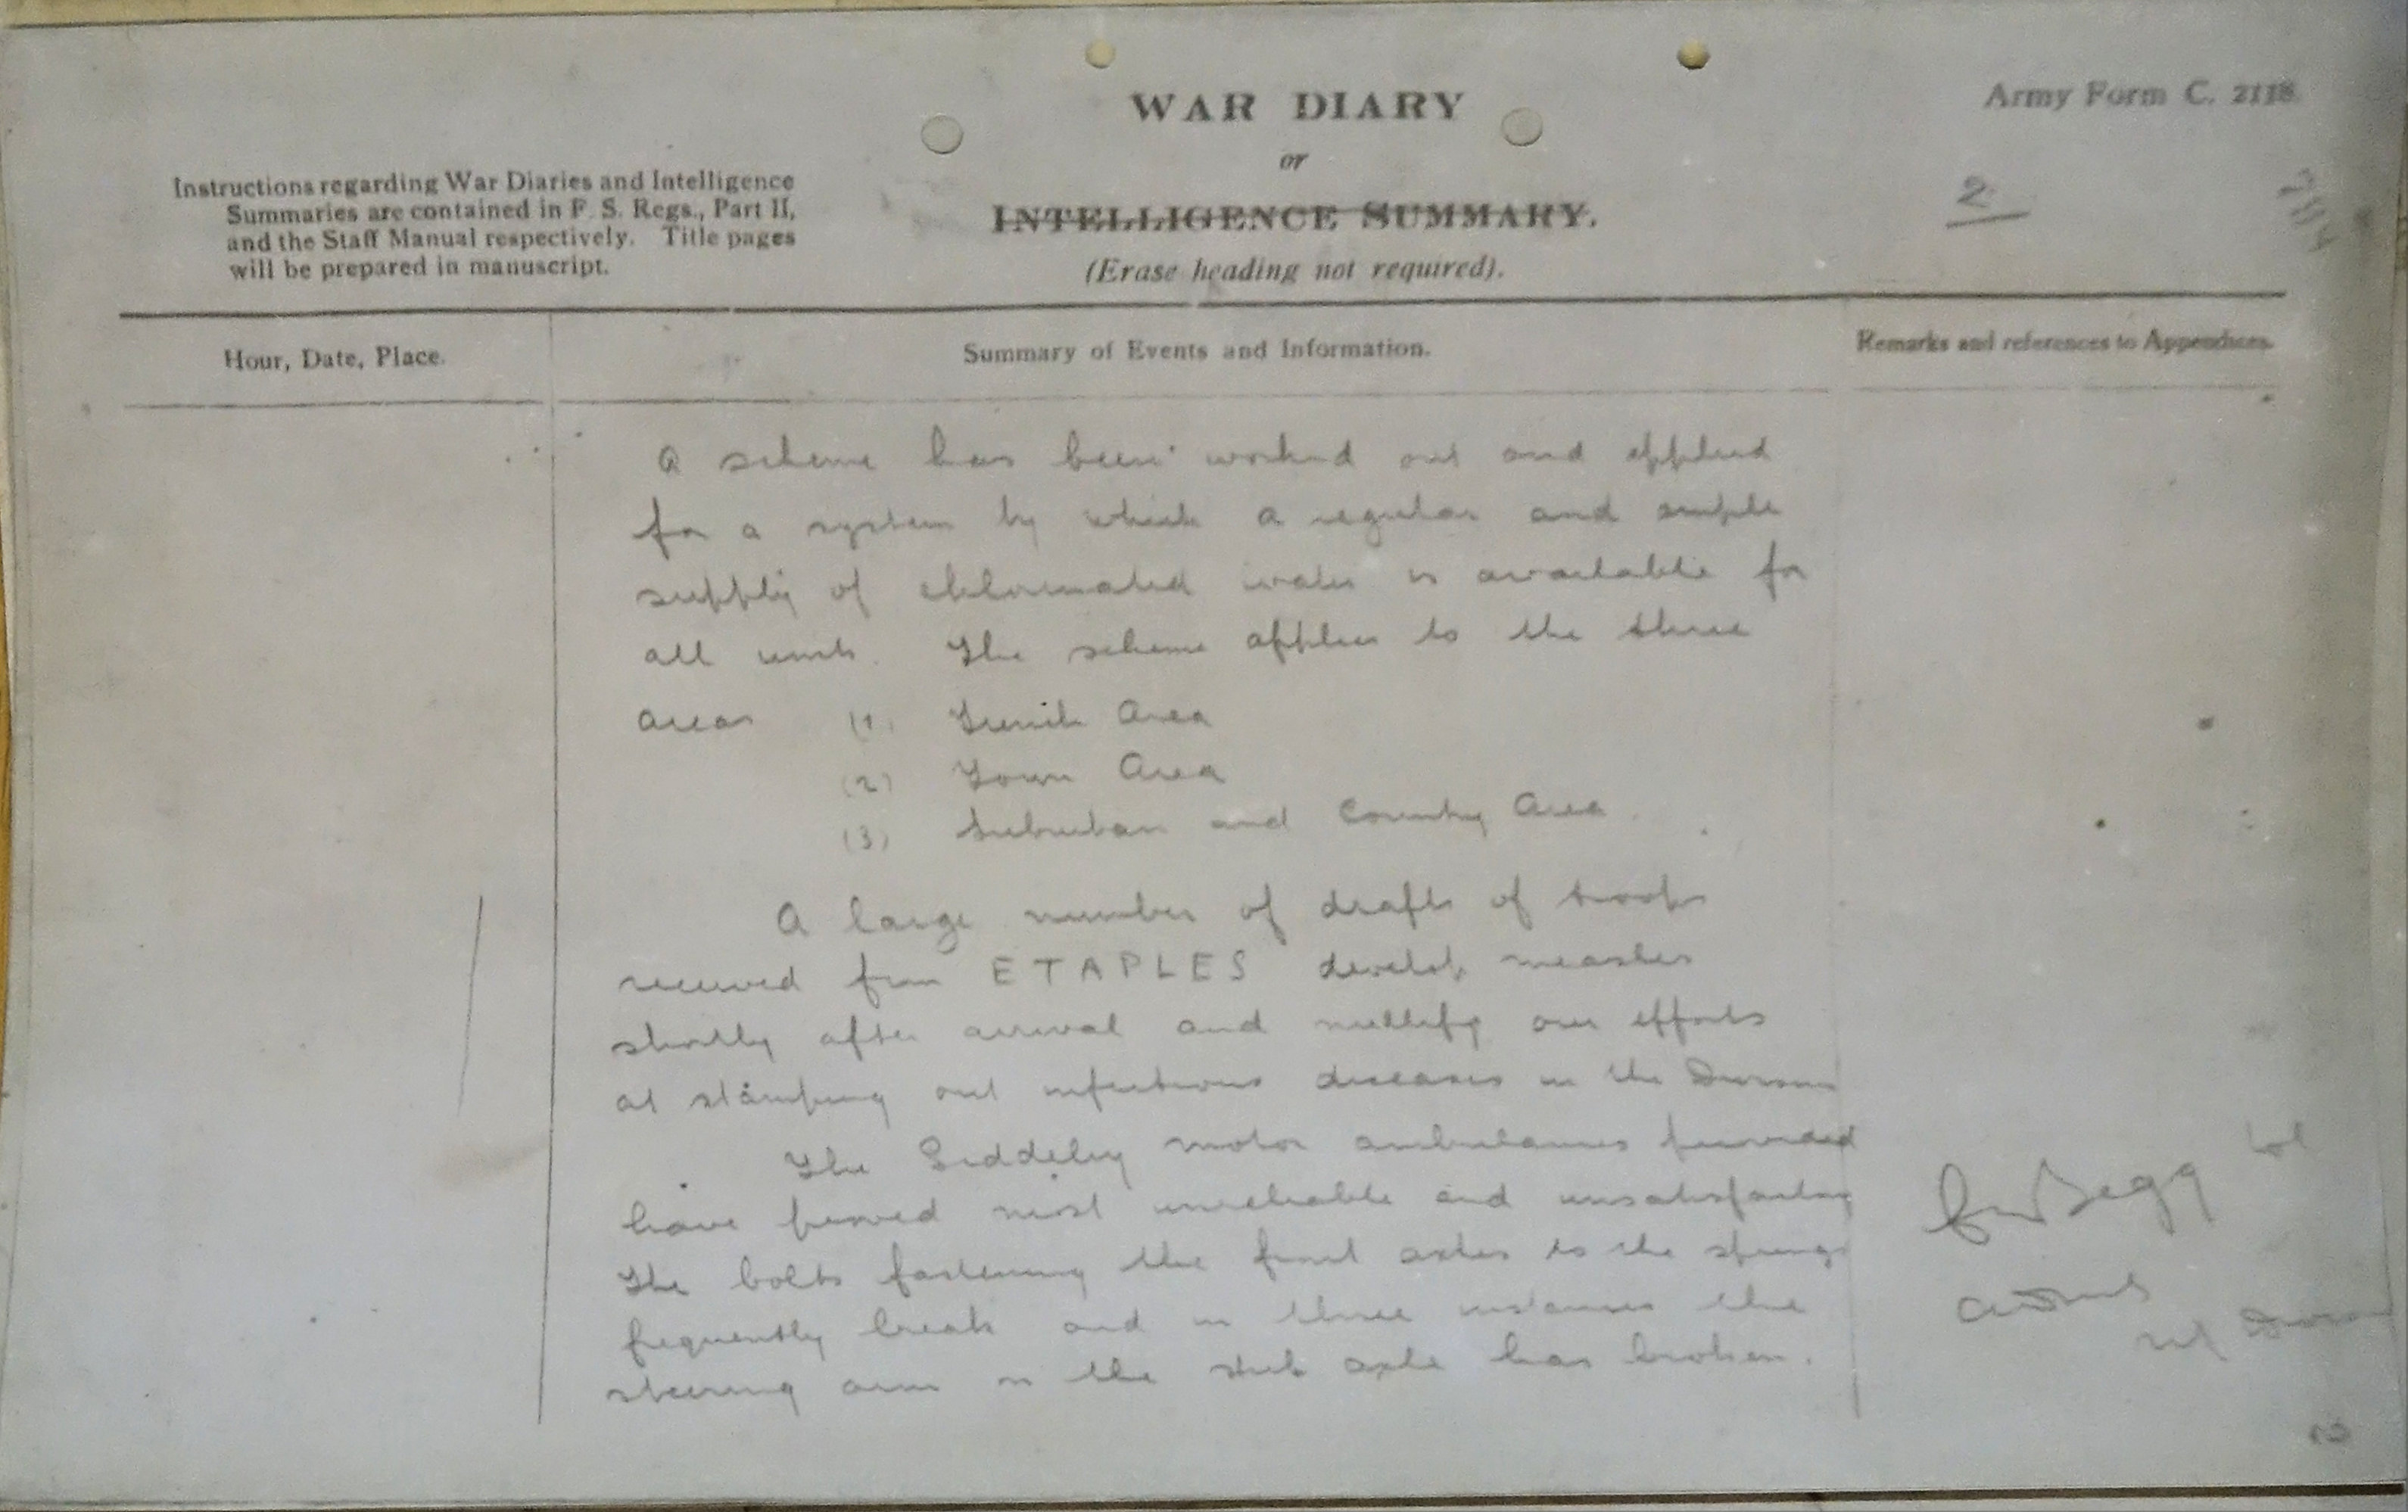 WAR DIARY
or
INTELLIGENCE SUMMARY.
(Erase heading not required).
Army Form C. 2118.
2
Instructions regarding War Diaries and Intelligence
Summaries are contained in F. S. Regs., Part II,
and the Staff Manual respectively. Title pages
will be prepared in manuscript.
Hour, Date, Place.
Summary of Events and Information.
Remarks and references to Appendices.
A scheme has been worked out and applied
for a system by which a regular and ample
supply of chlorinated water is available for
all units. The scheme applies to the three
areas (1) Trench Area
(2) Town Area
(3) Suburban and Country Area.
A large number of drafts of troops
received from ETAPLES develop measles
shortly after arrival and nullify our efforts
at stamping out infectious diseases in the Division
The Siddeley motor ambulances provided
have proved most unreliable and unsatisfactory
The bolts fastening the front axles to the springs
frequently break and in three instances the
steering arm on the stub axle has broken.
Begg Col
ADMS
NZ Division